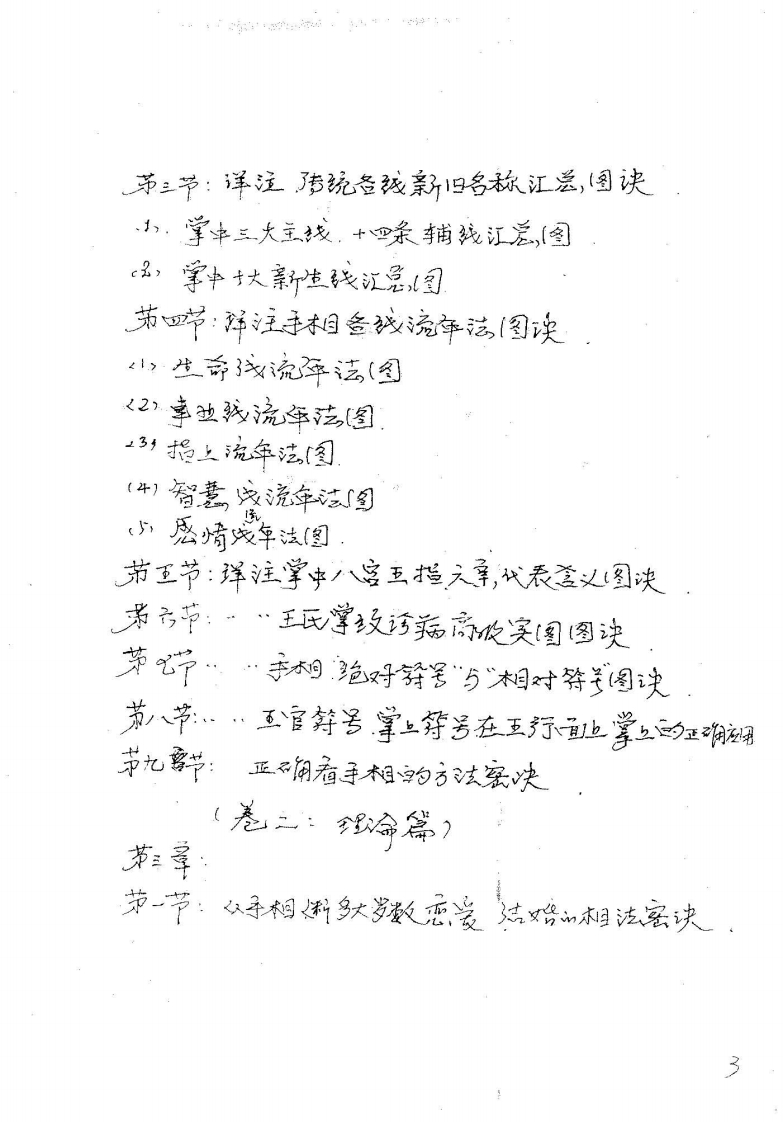 第三节：详注 传统各线新旧名称汇总,图诀
(1). 掌中三大主线、十四条辅线汇总,图
(2) 掌中十大新生线汇总,图
第四节：详注手相各线流年法,图诀
(1) 生命线流年法,图
(2) 事业线流年法,图
(3) 指上流年法,图
(4) 智慧线流年法,图
(5) 感情线流年法,图
第五节：详注掌中八宫五指六章,代表含义,图诀
第六节：〃〃 王氏掌纹诊病高级实图图诀
第七节 〃〃 手相"绝对符号"与"相对符号"图诀
第八节：〃〃 五官符号.掌上符号在五行面上掌上的正确应用
第九节： 正确看手相的方法密诀
（卷二：理论篇）
第三章：
第一节：从手相断多大岁数恋爱、结婚的相法密诀.
3